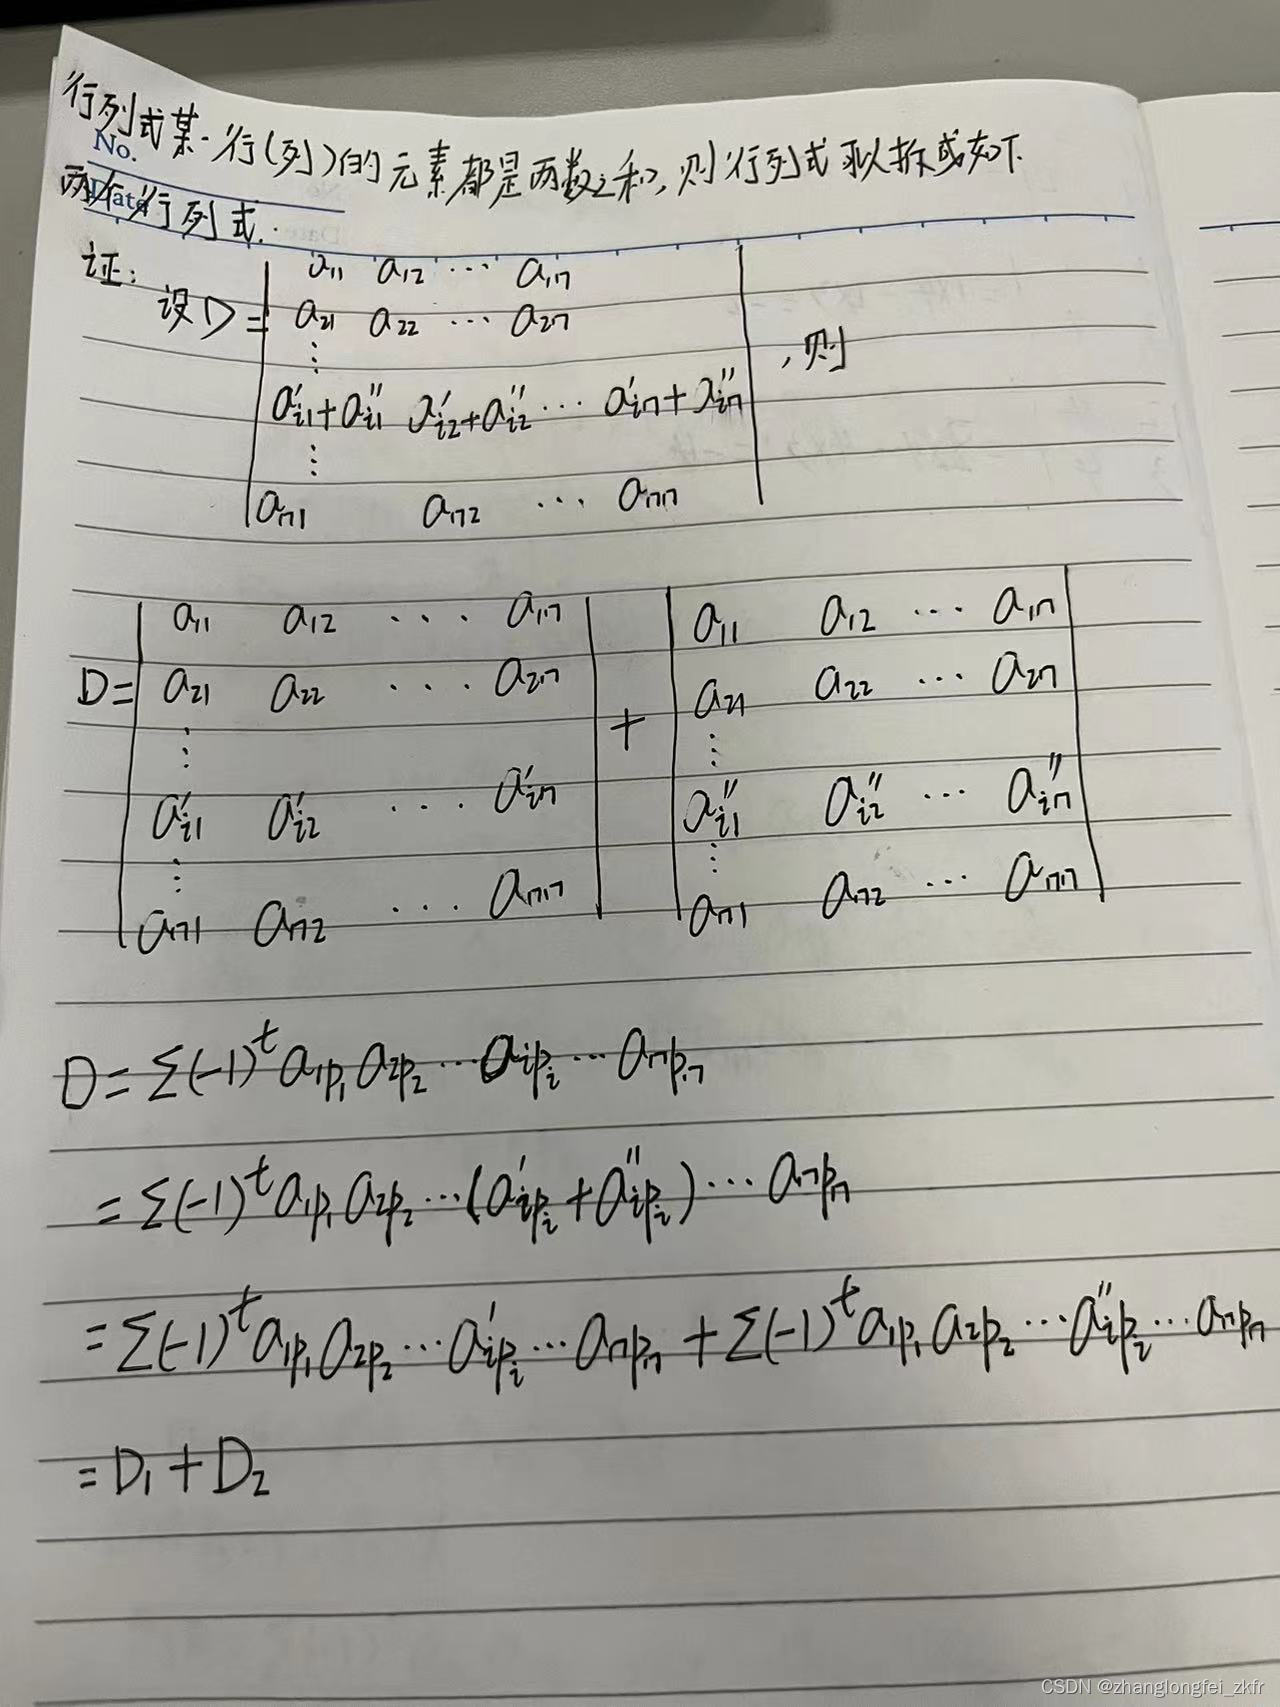 行列式某一行(列)的元素都是两数之和,则行列式可以拆成如下
No.
Date
两个行列式.
证:
设D= | a₁₁ a₁₂ ⋯ a₁ₙ
a₂₁ a₂₂ ⋯ a₂ₙ
⋮
a'ᵢ₁+a''ᵢ₁ a'ᵢ₂+a''ᵢ₂ ⋯ a'ᵢₙ+a''ᵢₙ | ,则
⋮
aₙ₁ aₙ₂ ⋯ aₙₙ
a₁₁ a₁₂ ⋯ a₁ₙ | | a₁₁ a₁₂ ⋯ a₁ₙ |
D= | a₂₁ a₂₂ ⋯ a₂ₙ | + | a₂₁ a₂₂ ⋯ a₂ₙ |
⋮ ⋮
a'ᵢ₁ a'ᵢ₂ ⋯ a'ᵢₙ | | a''ᵢ₁ a''ᵢ₂ ⋯ a''ᵢₙ |
⋮ ⋮
aₙ₁ aₙ₂ ⋯ aₙₙ | | aₙ₁ aₙ₂ ⋯ aₙₙ |
D=Σ(-1)^t a_{1p₁} a_{2p₂} ⋯ a_{ipᵢ} ⋯ a_{npₙ}
=Σ(-1)^t a_{1p₁} a_{2p₂} ⋯ (a'_{ipᵢ}+a''_{ipᵢ}) ⋯ a_{npₙ}
=Σ(-1)^t a_{1p₁} a_{2p₂} ⋯ a'_{ipᵢ} ⋯ a_{npₙ} + Σ(-1)^t a_{1p₁} a_{2p₂} ⋯ a''_{ipᵢ} ⋯ a_{npₙ}
=D₁+D₂
CSDN @zhanglongfei_zkfr